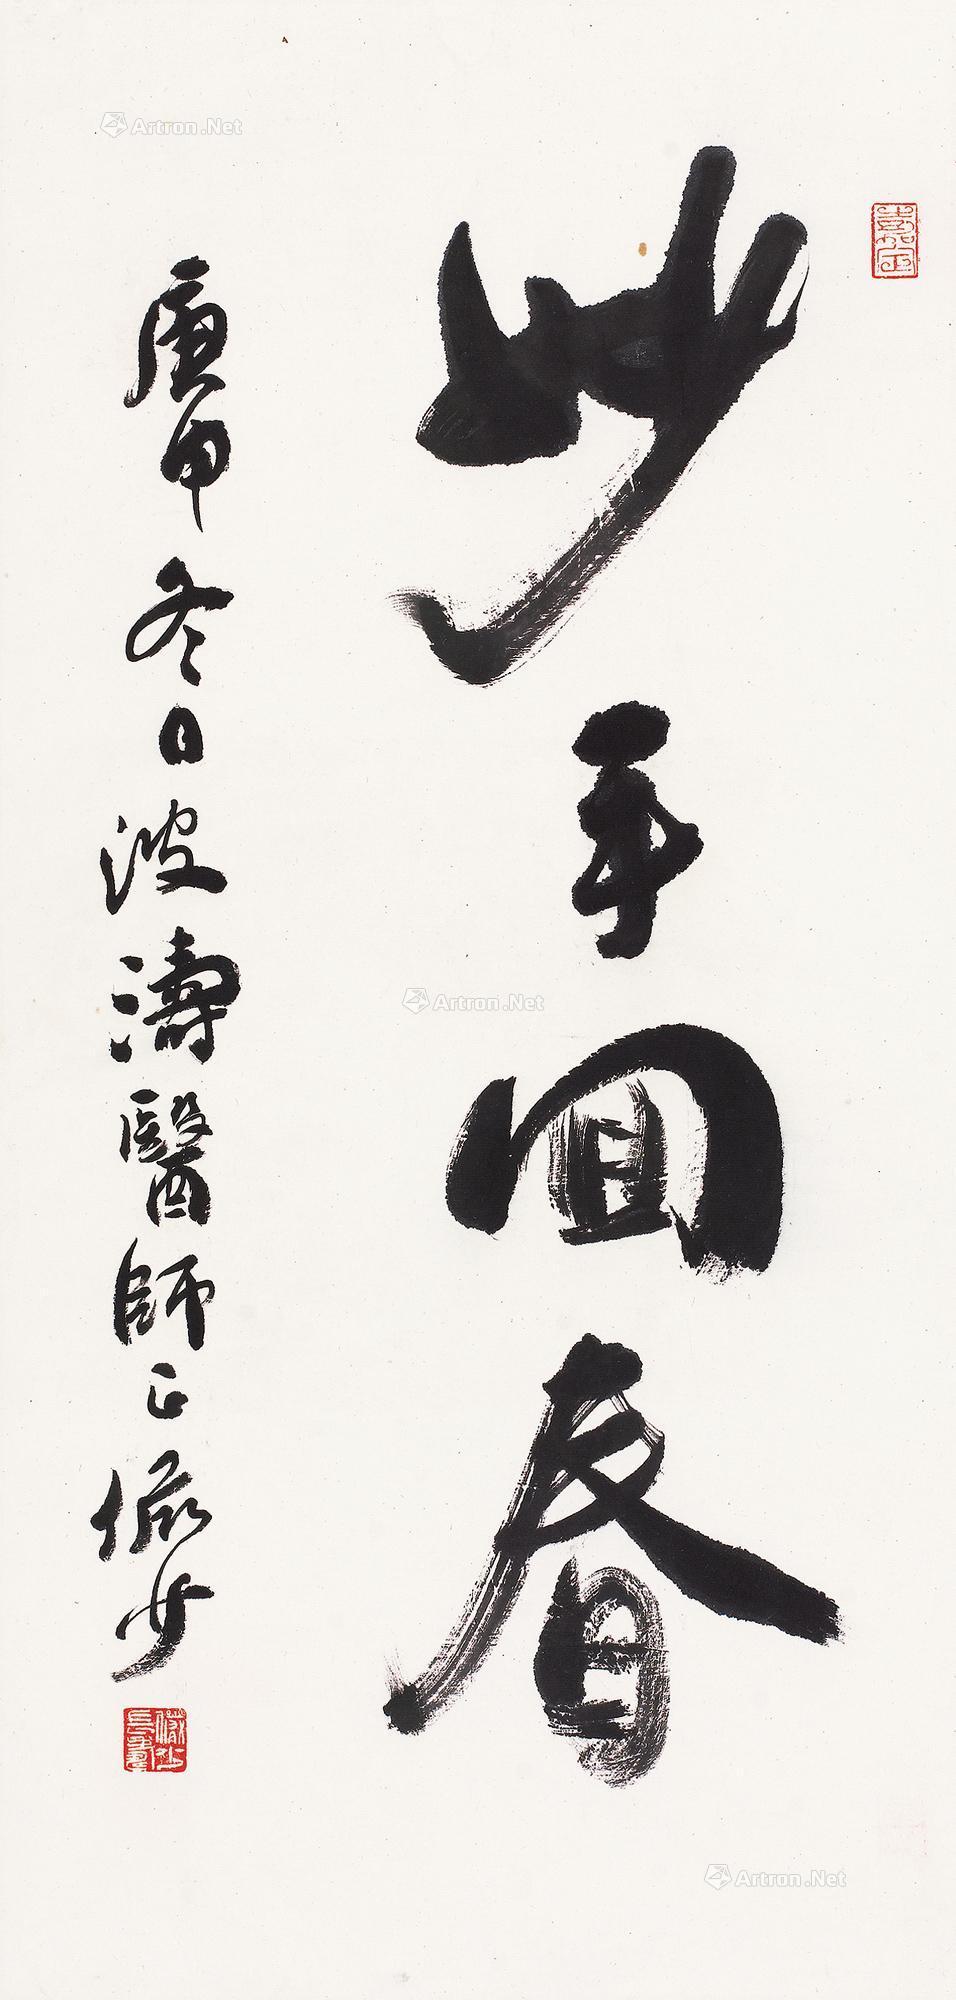 妙手回春
庚申冬日波濤醫師正儼少
Artron.Net
Artron.Net
Artron.Net